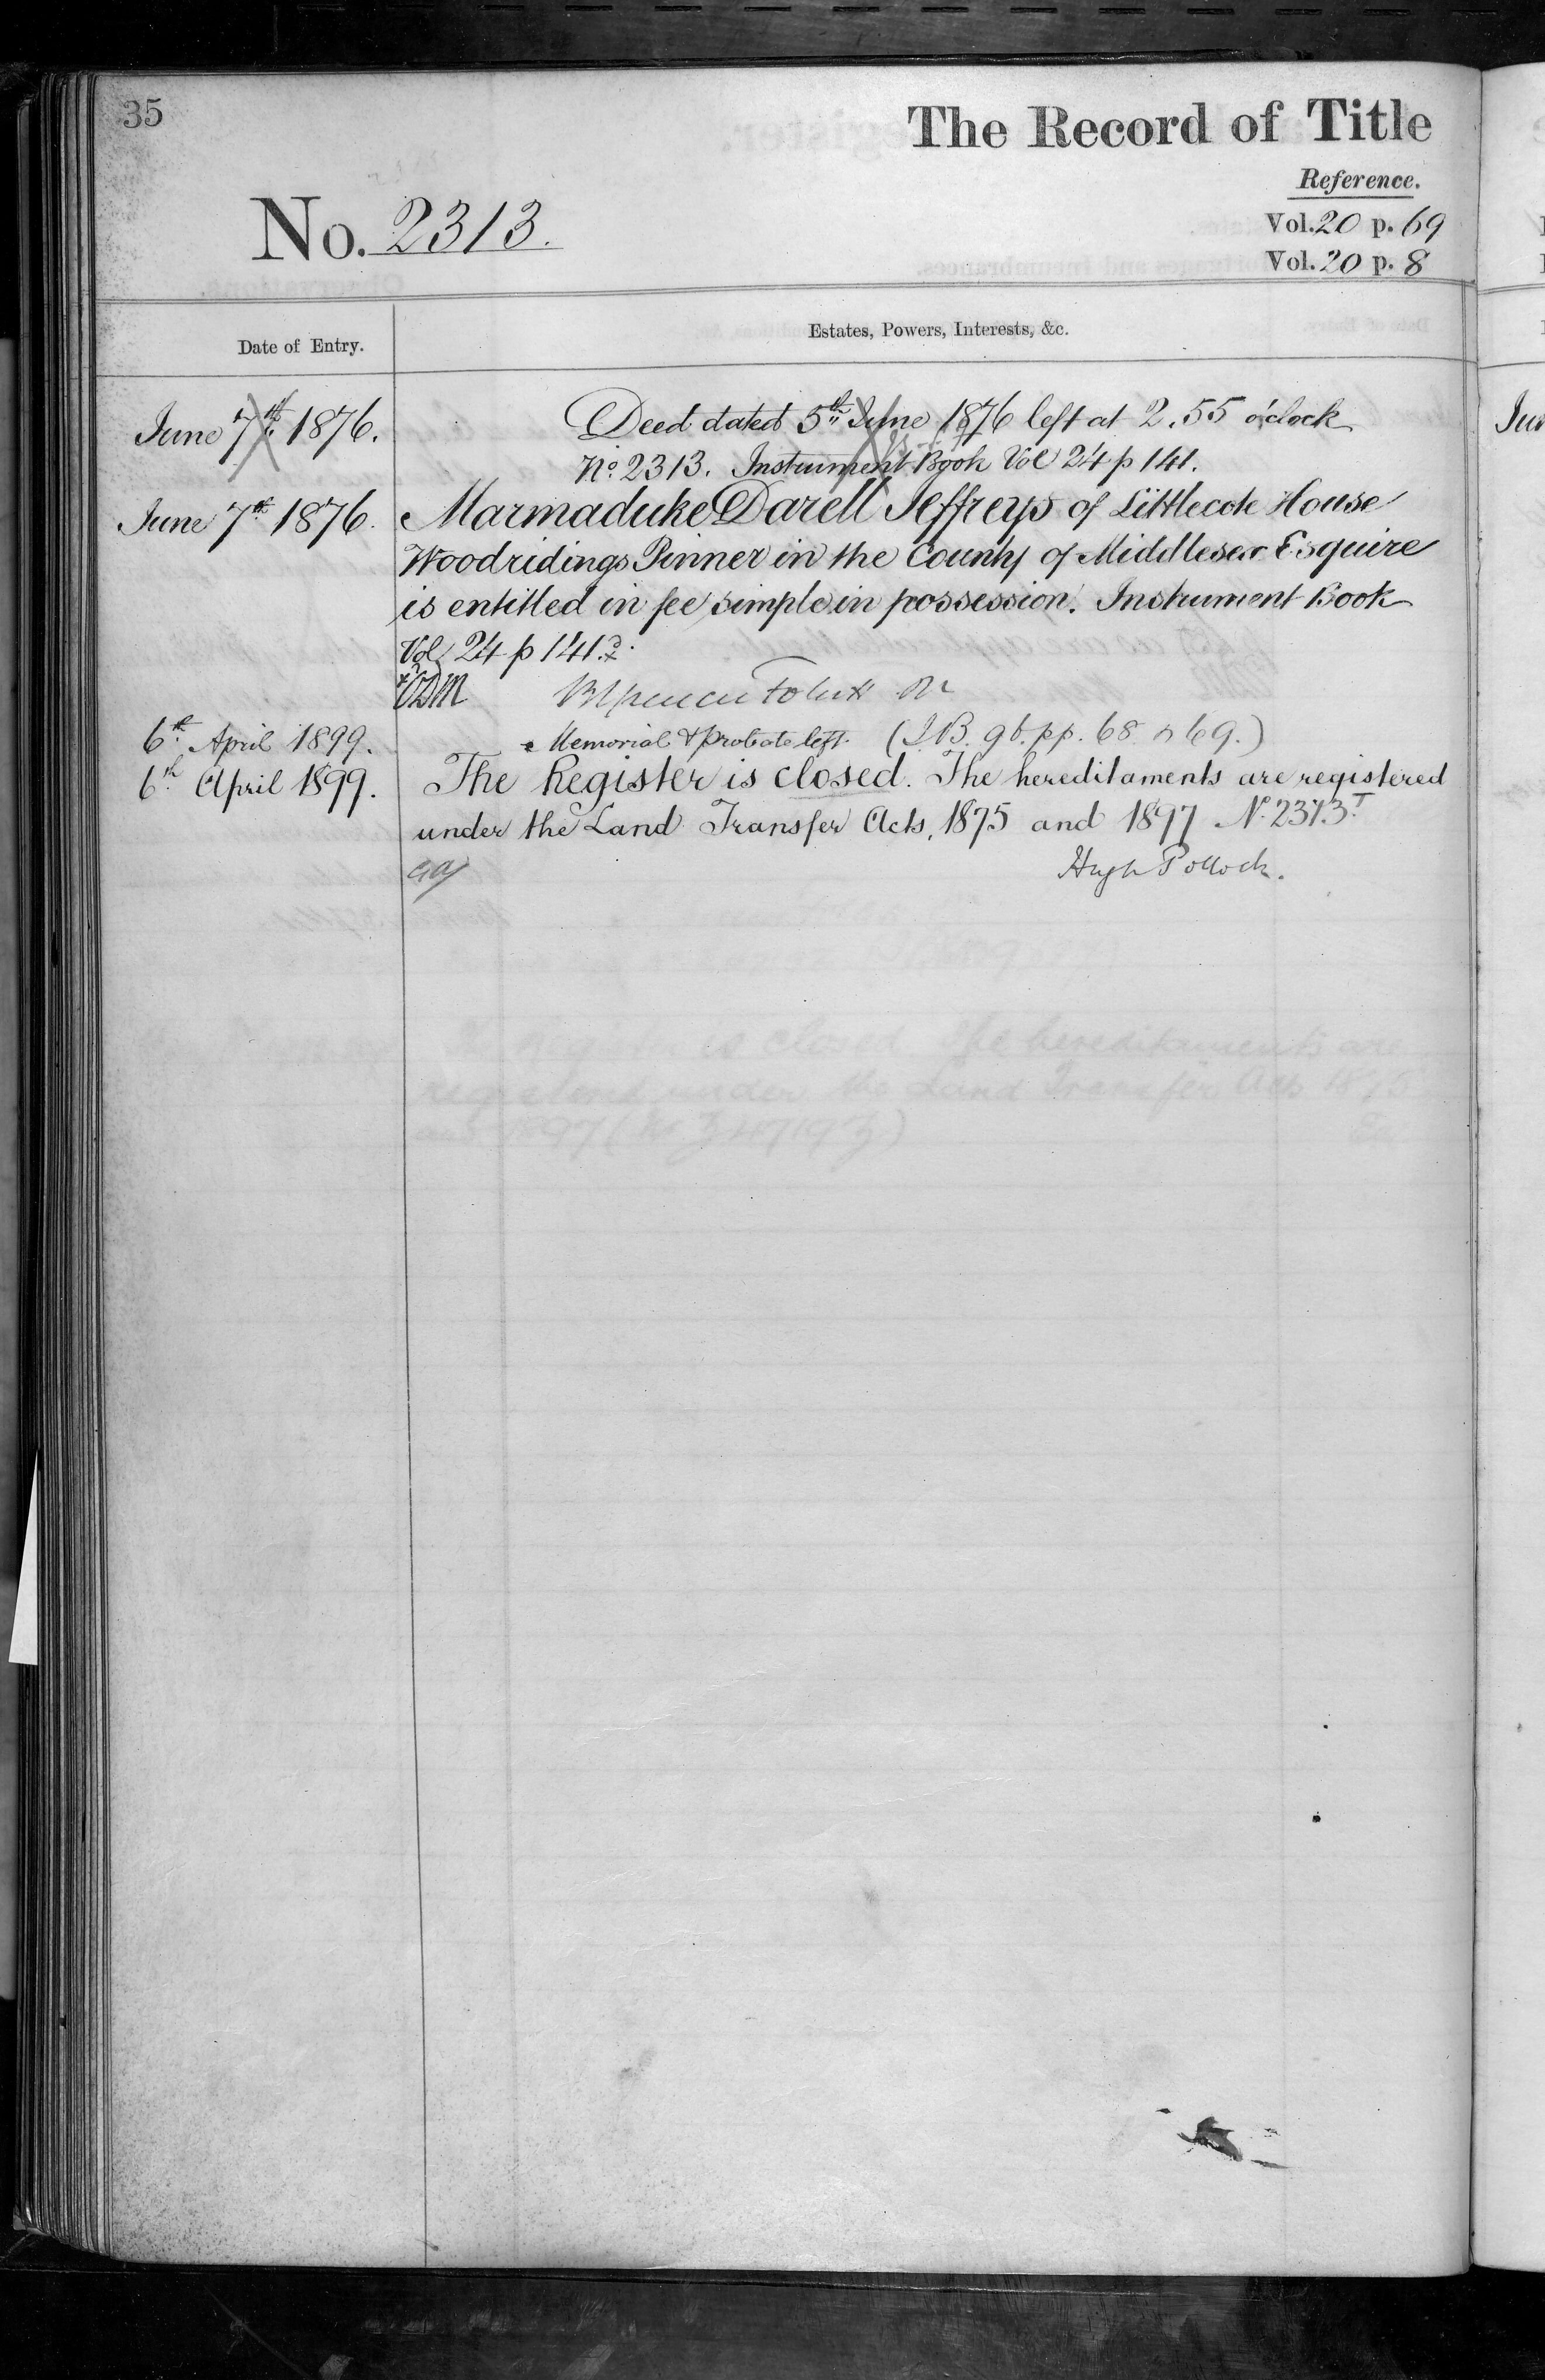 35
The Record of Title
Reference.
No. 2313.
Vol. 20 p. 69
Vol. 20 p. 8
Date of Entry.
Estates, Powers, Interests, &c.
June 7th 1876.
Deed dated 5th June 1876 left at 2.55 o'clock
No 2313. Instrument Book Vol 24 p 141.
June 7th 1876.
Marmaduke Darell Jeffreys of Littlecote House
Woodridings Pinner in the County of Middlesex Esquire
is entitled in fee simple in possession. Instrument Book
Vol 24 p 141.
6th April 1899.
Memorial & Probate left. (I.B. 96. pp. 68 69.)
6th April 1899.
The Register is closed. The hereditaments are registered
under the Land Transfer Acts, 1875 and 1897 No. 2313.T
Hugh Pollock.